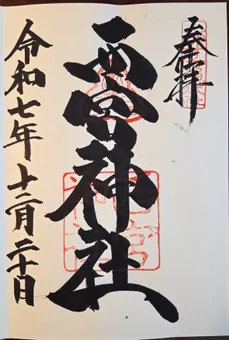 奉拝
西宮神社
令和七年十二月二十日